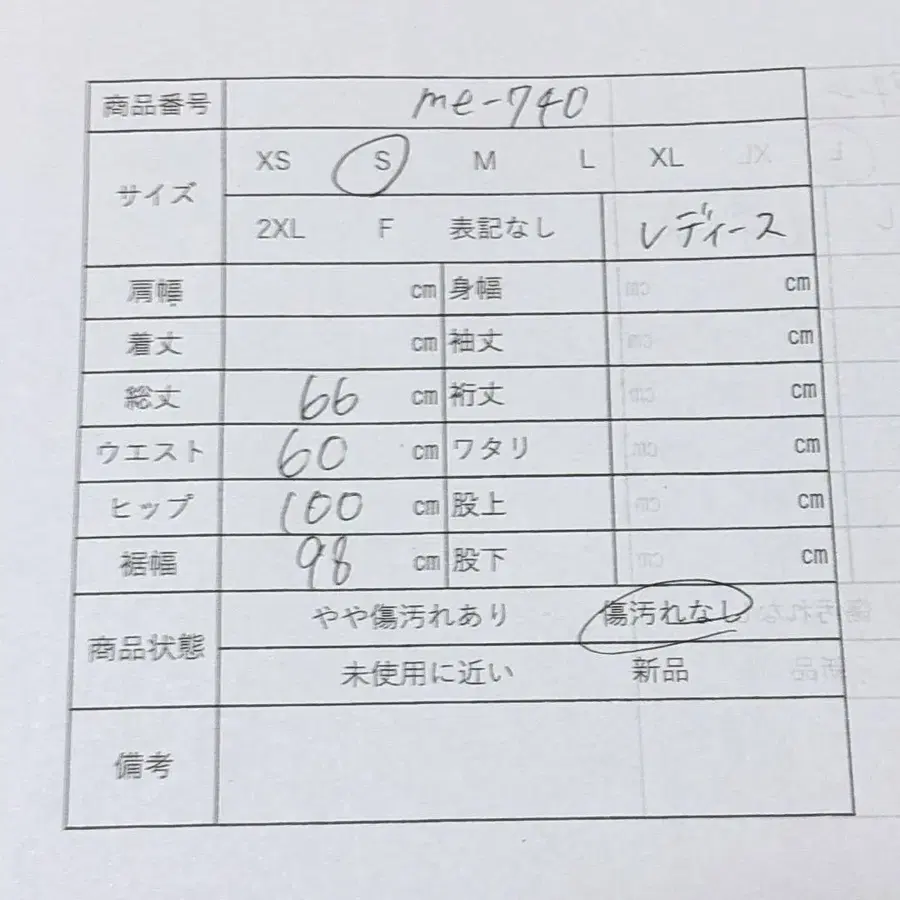 商品番号 me-740
サイズ XS S M L XL
2XL F 表記なし レディース
肩幅 cm 身幅 cm
着丈 cm 袖丈 cm
総丈 66 cm 裄丈 cm
ウエスト 60 cm ワタリ cm
ヒップ 100 cm 股上 cm
裾幅 98 cm 股下 cm
商品状態 やや傷汚れあり 傷汚れなし
未使用に近い 新品
備考